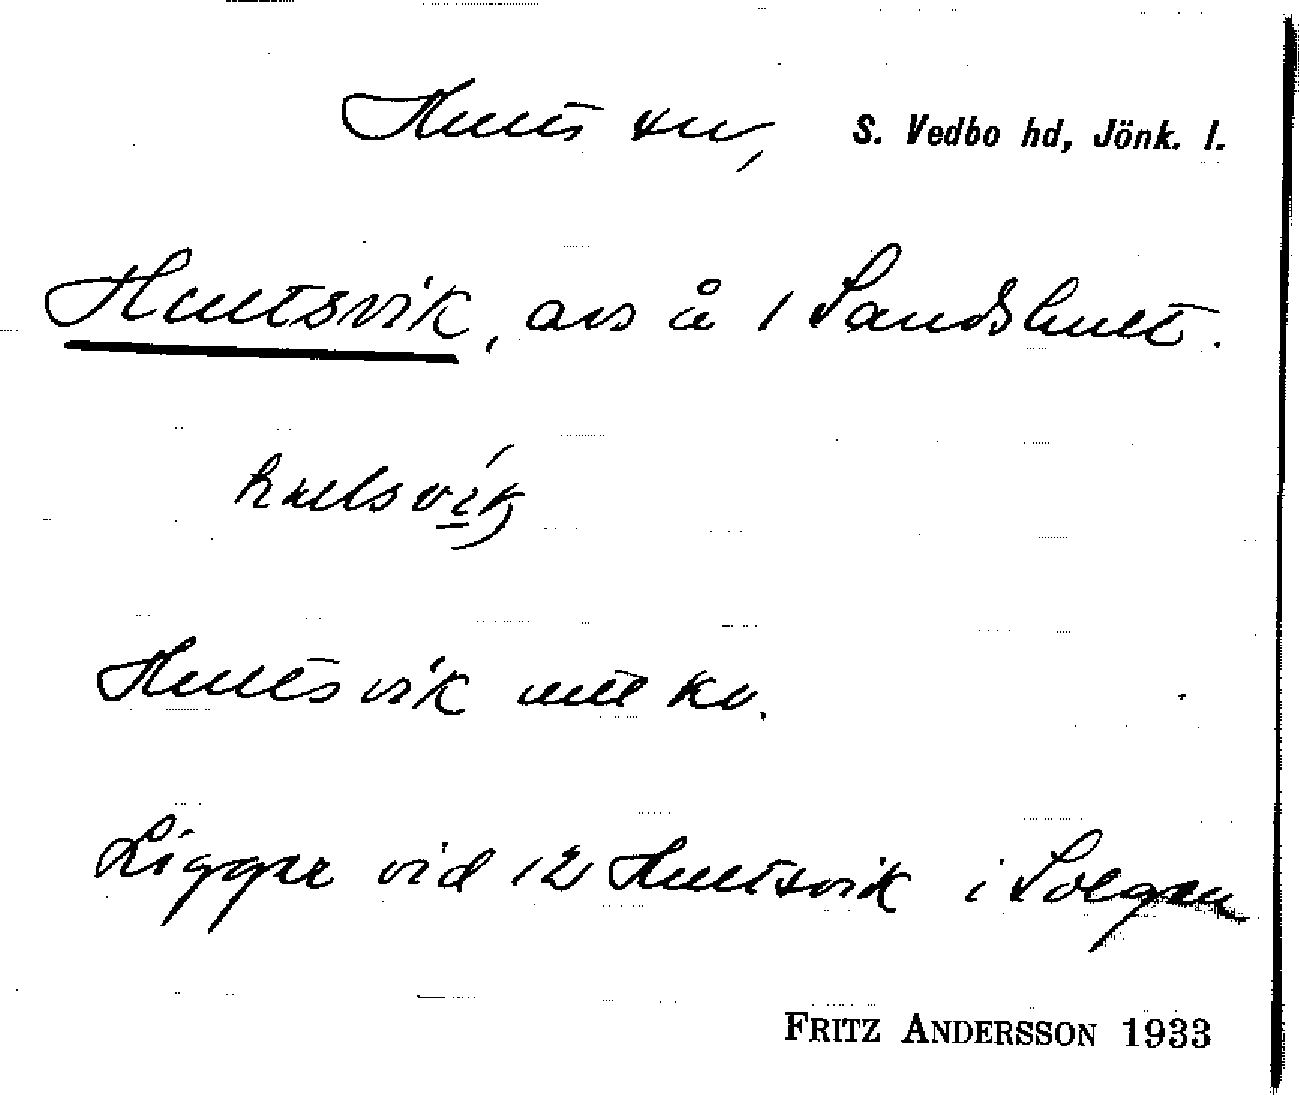 Hults sn, S. Vedbo hd, Jönk. l.
Hultsvik, avs å 1 Sandshult.
hulsvik
Hultsvik utt kv.
Ligger vid 12 Hultsvik i Solgen
FRITZ ANDERSSON 1933